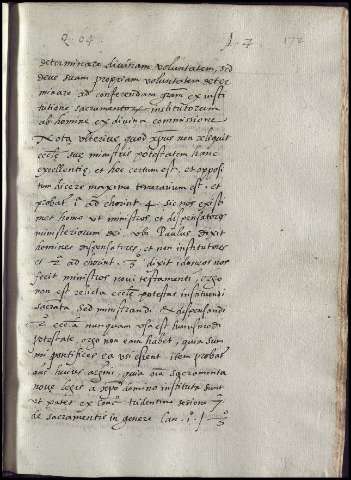 Q. 64. A. 7. 172
determinare divinam voluntatem, sed
deus suam propriam voluntatem deter
minare ad conferendam gram ex insti
tutione sacramentor institutorum
ab homine ex divina commissione
Nota ulterius quod xpus non reliquit
ecctie sue ministris potestatem hanc
excellentie, et hoc certum est, et opposi
tum dicere maxima temerarium est, et
probat 1ª ad chorint 4. sic nos existi
met homo ut ministros et dispensatores
ministeriorum dei, ubi Paulus dixit
homines dispensatores, et non institutores
et 2ª ad chorint. 3º dixit idoneos nos
fecit ministros novi testamenti, ergo
non est relicta ecctie potestas instituendi
sacrata sed ministrandi & dispensandi
2º ecctia nunquam usa est huiusmodi
potestate, ergo non eam habet, quia sum
mi pontifices ea usi essent. item probat
ans huius argmi, quia oia sacramenta
nove legis a xpo domino instituta sunt
ut patet ex conc. tridentino sessione 7
de sacramentis in genere Can. 1.